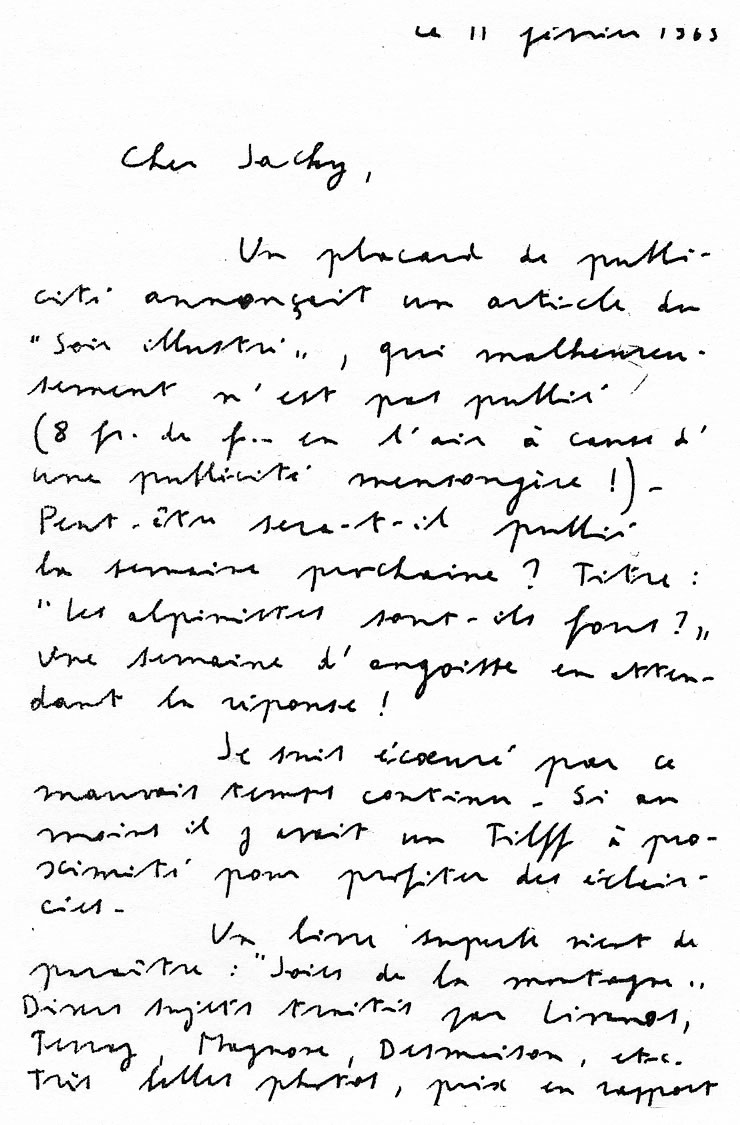 ce 11 février 1965
Cher Jacky,
Un placard de publi-
cité annonçait un article du
"Soir illustré", qui malheureu-
sement n'est pas publié
(8 fr. de f... en l'air à cause d'
une publicité mensongère !) -
Peut-être sera-t-il publié
la semaine prochaine ? Titre :
"Les alpinistes sont-ils fous ?"
Une semaine d'angoisse en atten-
dant la réponse !
Je suis écœuré par ce
mauvais temps continu - Si au
moins il y avait un Tilff à pro-
ximité pour profiter des éclair-
cies -
Un livre superbe vient de
paraître : "Joies de la montagne"
Divers sujets traités par Livanos,
Terray, Magnone, Desmaison, etc.
Très belles photos, prix en rapport